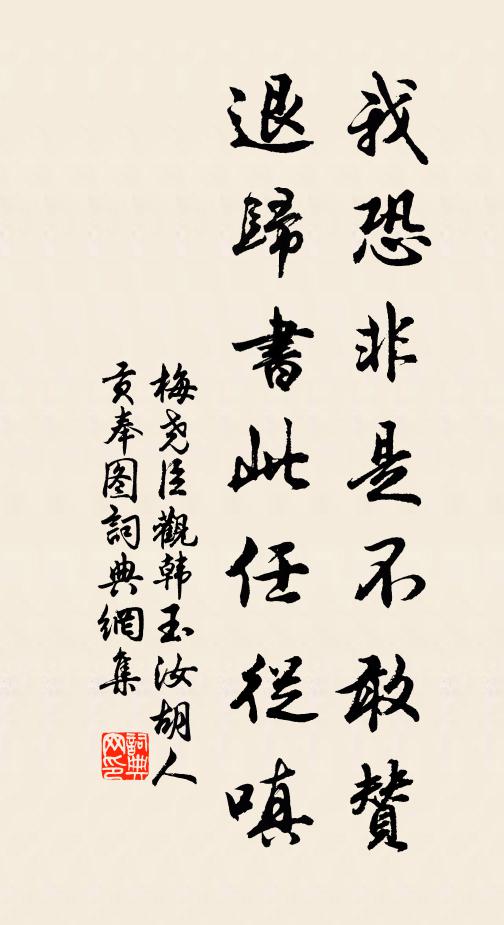 我恐非是不敢贊
退歸書此任從嗔
梅堯臣觀韩玉汝胡人
貢奉图詞典網集
詞典
网印